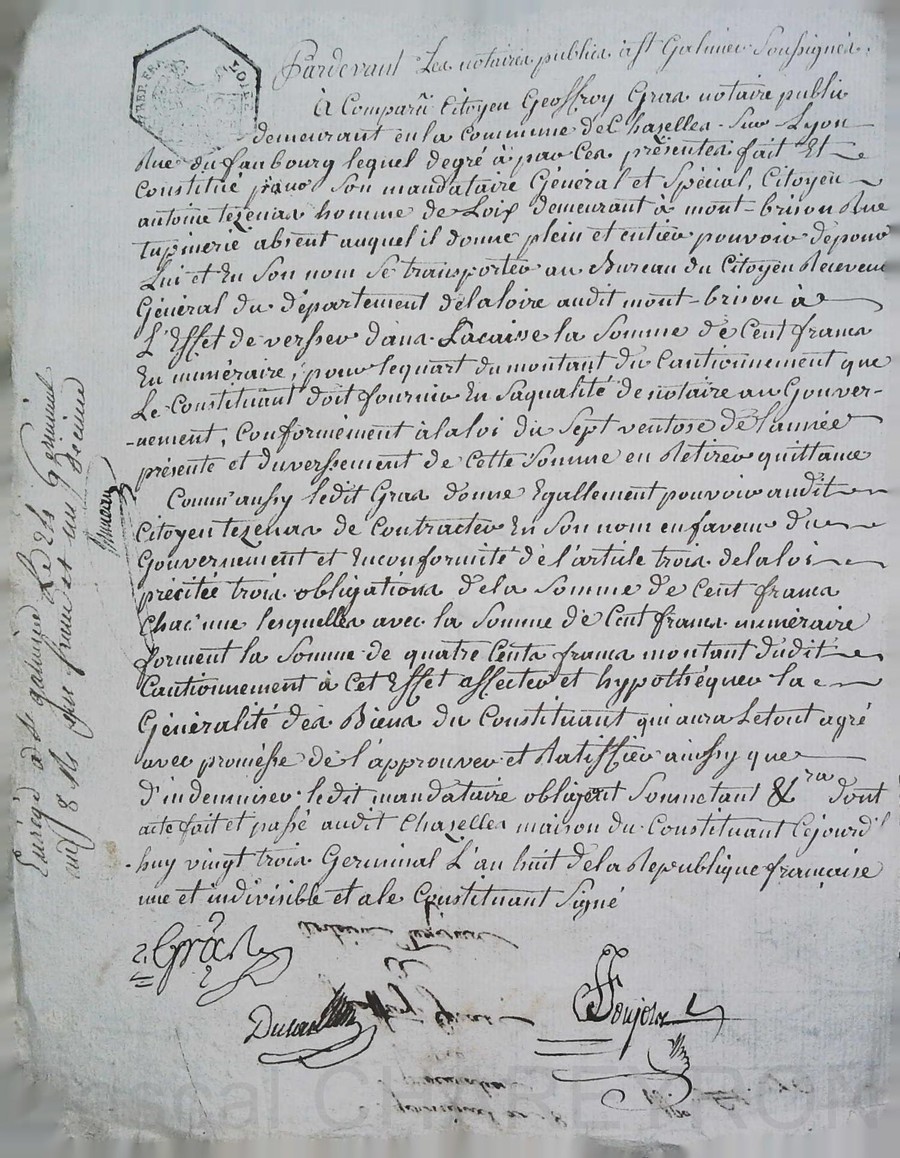 Pardevant Les notaires publics à St Galmier Soussignés.
à Comparû Citoyen Geoffroy Gras notaire public
demeurant en la commune de Chazelles-Sur-Lyon
Rue du faubourg lequel degré à par Ces présentes fait Et
Constitué pour Son mandataire Général et Spécial, Citoyen
antoine tezenas homme de Loix demeurant à mont-brison Rue
tupinerie absent auquel il donne plein et entier pouvoir de pour
Lui et En Son nom Se transporter au Bureau du Citoyen Receveur
Général du département delaloire audit mont-brison à
L'Effet de verser dans Lacaisse la Somme de Cent francs
En numéraire, pour lequart du montant du Cautionnement que
Le Constituant doit fournir En Saqualité de notaire au Gouver-
-nement, Conformément àlaloi du Sept ventose de l'année
présente et duversement de Cette Somme en Retirer quittance
Comm'aussy ledit Gras donne Egallement pouvoir audit
Citoyen tezenas de Contracter En Son nom enfaveur du
Gouvernement et Enconformité de l'article trois delaloi
précitée trois obligations dela Somme de Cent francs
Chac'une lesquelles avec la Somme de Cent francs numéraire
forment la Somme de quatre Cents francs montant dudit
Cautionnement à Cet Effet affecter et hypothéquer la
Généralité des Biens du Constituant qui aura Letout agré
avec promesse de l'approuver et Ratiffier aussy que
d'indemniser ledit mandataire obligeant Soumetant &ra dont
acte fait et passé audit Chazelles maison du Constituant Cejourd'
huy vingt trois Germinal L'an huit dela Republique française
une et indivisible et ale Constituant Signé
Gras
Enregé à St galmier Le 25 Germinal
an 8 Re un franc et un Decime